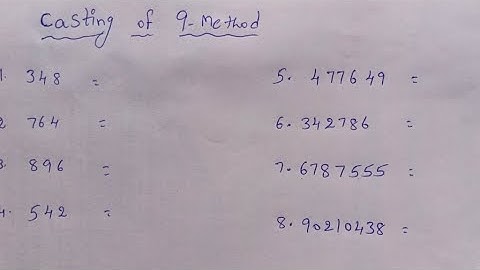 Casting of 9-Method
1. 348 =
2 764 =
3. 896 =
4. 542 =
5. 477649 =
6. 342786 =
7. 6787555 =
8. 90210438 =